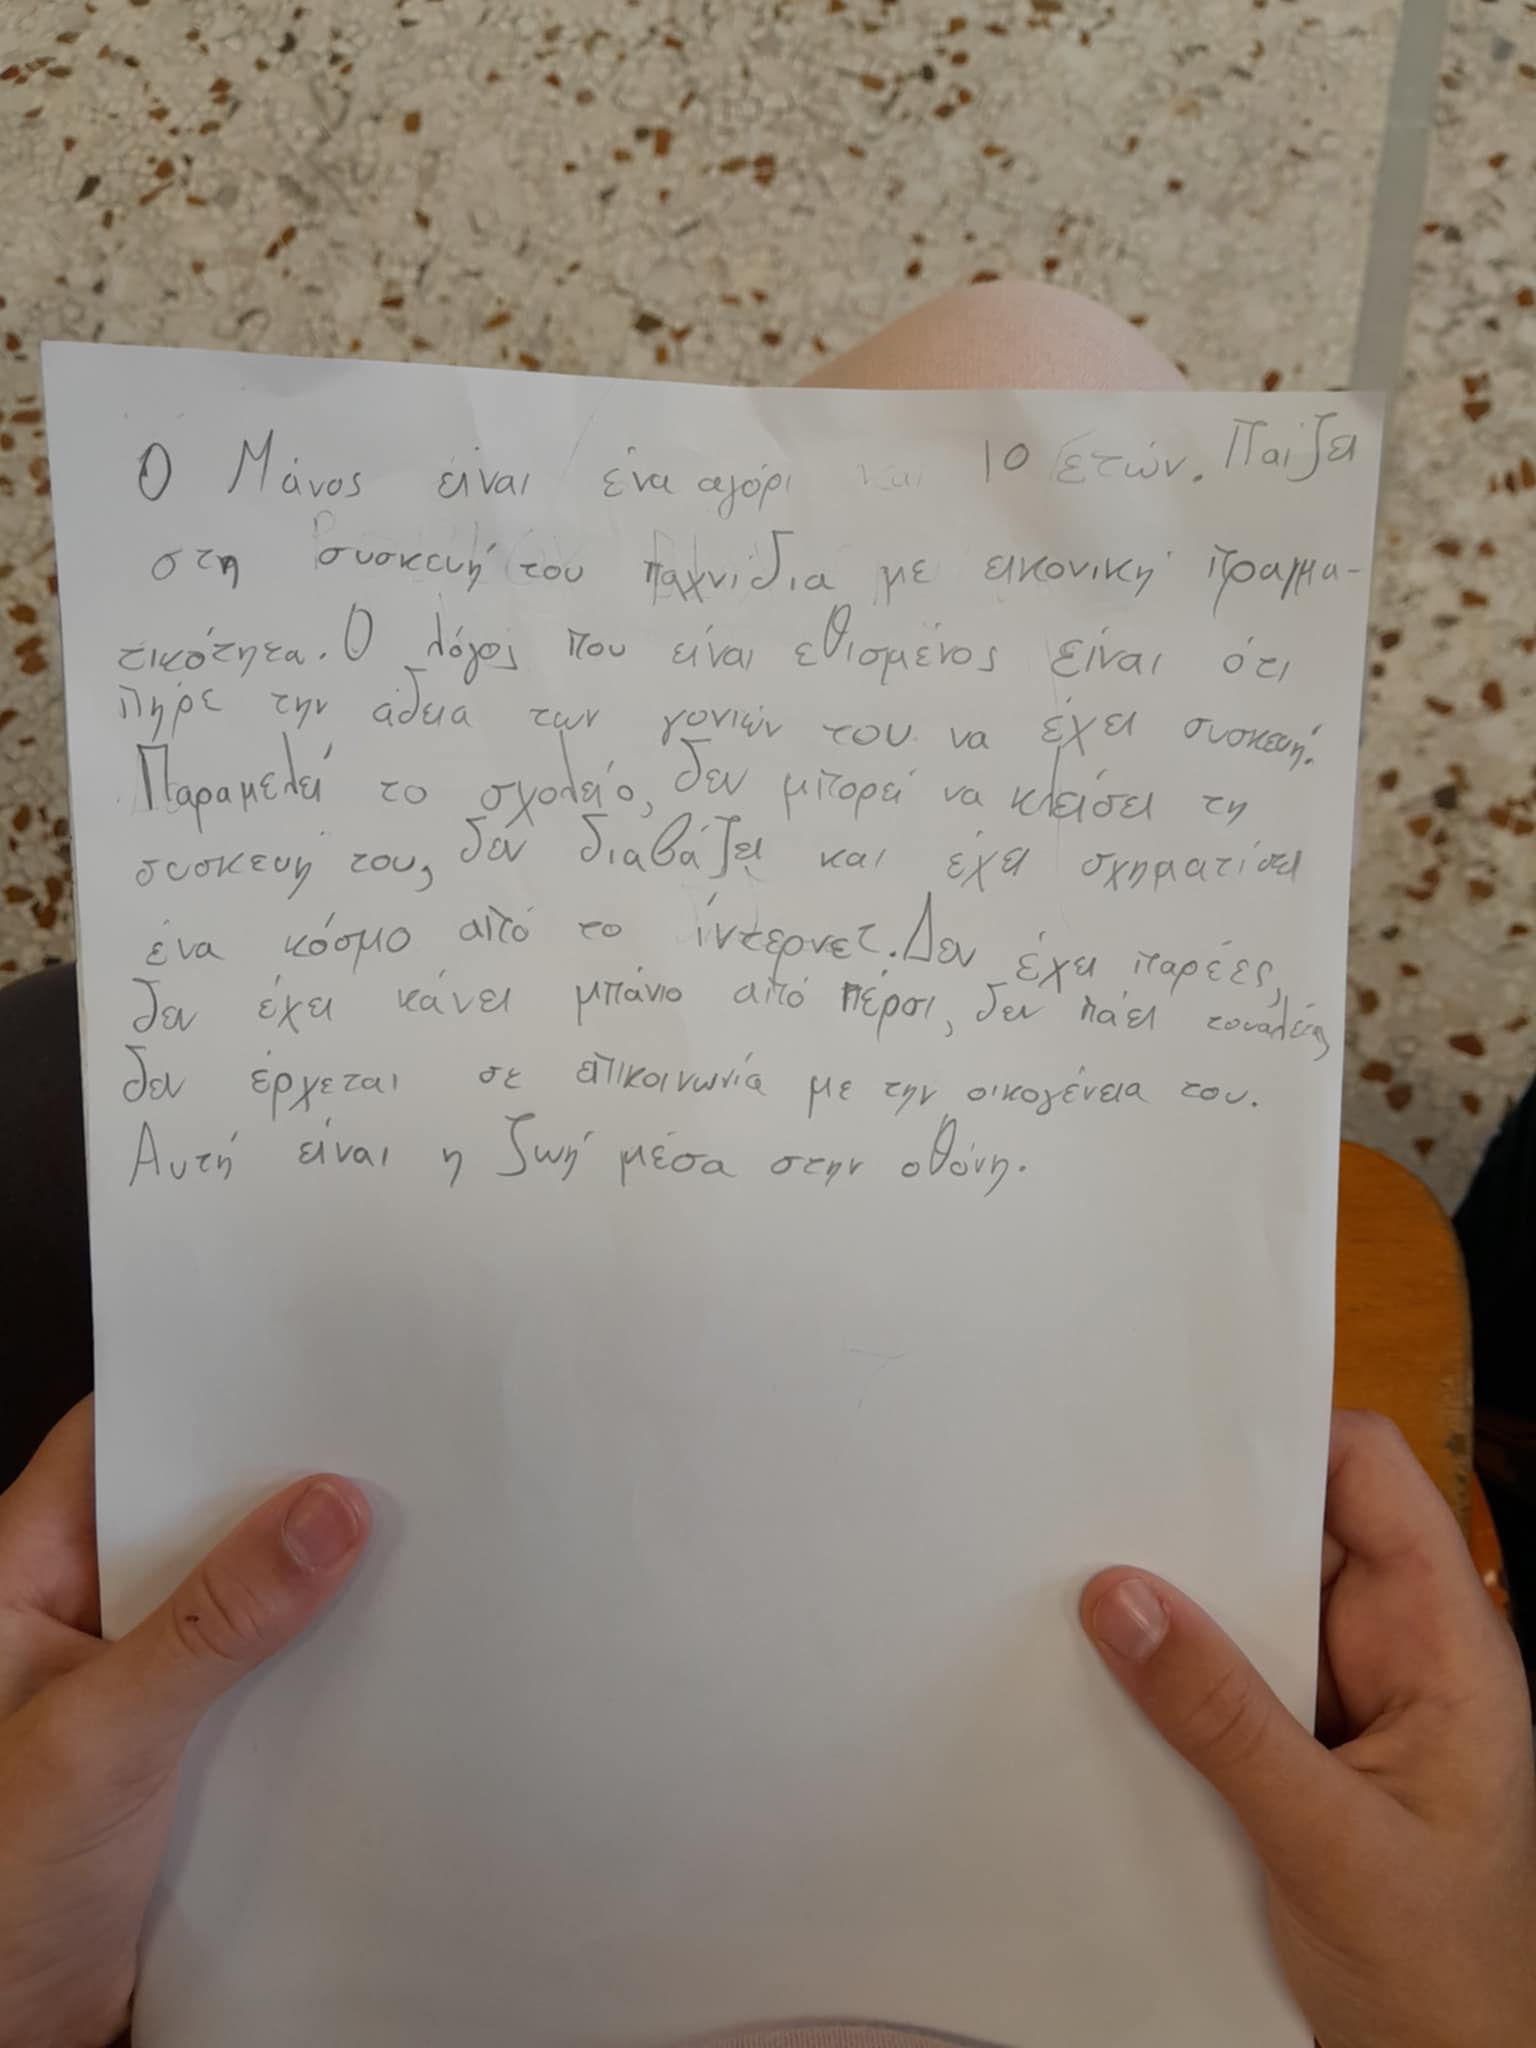 Ο Μάνος είναι ένα αγόρι 10 ετών. Παίζει
στη συσκευή του παχνίδια με εικονική πραγμα-
τικότητα. Ο λόγος που είναι εθισμένος είναι ότι
πήρε την άδεια των γονιών του να έχει συσκευή.
Παραμελεί το σχολείο, δεν μπορεί να κλείσει τη
συσκευή του, δεν διαβάζει και έχει σχηματίσει
ένα κόσμο από το ίντερνετ. Δεν έχει παρέες,
δεν έχει κάνει μπάνιο από πέρσι, δεν πάει τουαλέτα,
δεν έρχεται σε επικοινωνία με την οικογένεια του.
Αυτή είναι η ζωή μέσα στην οθόνη.